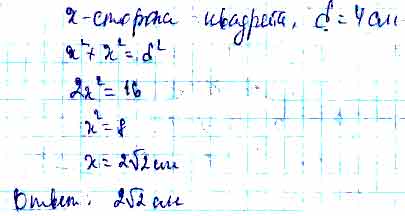 x-сторона квадрата, d = 4 см
x² + x² = d²
2x² = 16
x² = 8
x = 2√2 см
Ответ: 2√2 см